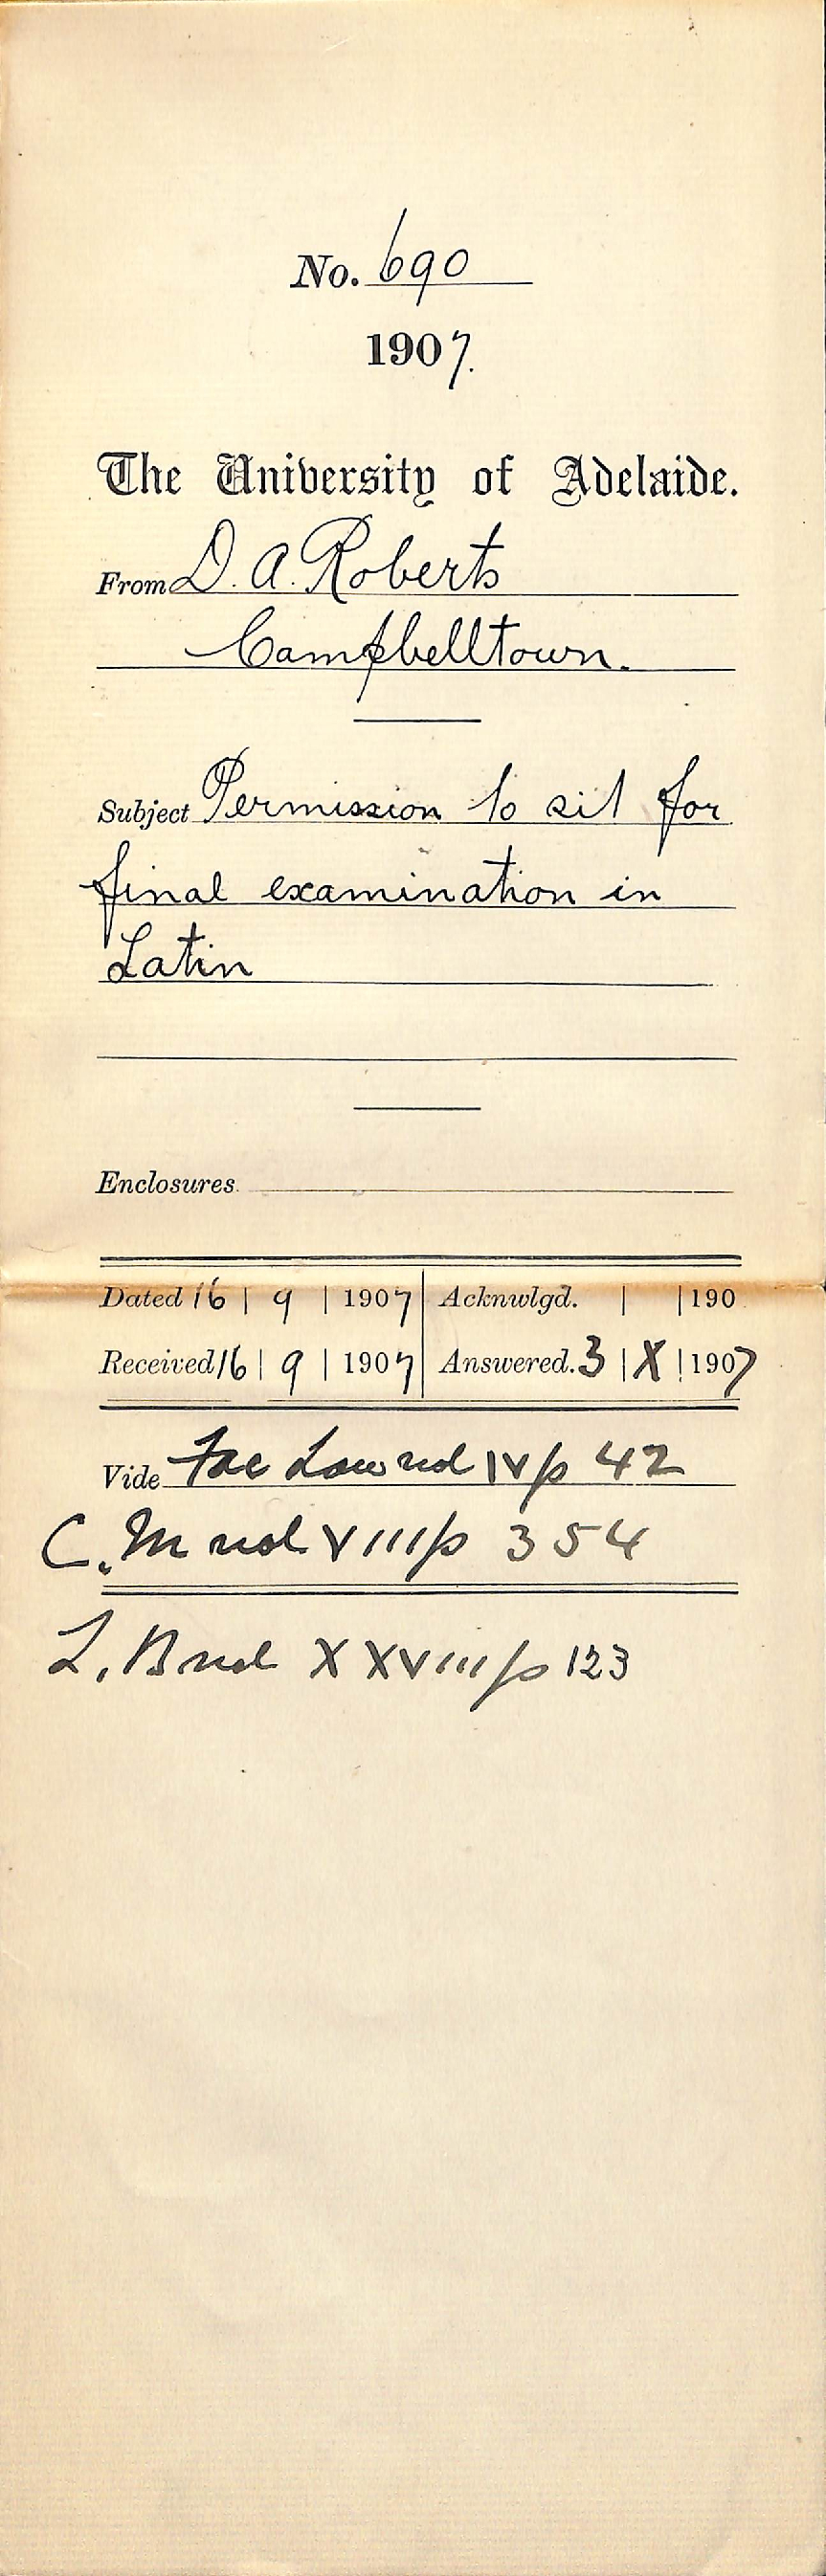 No. 690
1907.
The University of Adelaide.
From D. A. Roberts
Campbelltown.
Subject Permission to sit for
final examination in
Latin
Enclosures.
Dated 16 | 9 | 1907 Acknwlgd. | | 190
Received 16 | 9 | 1907 Answered. 3 | X | 1907
Vide Fac Law vol IV p 42
C. M vol VIII p 354
L. B vol XXVIII p 123